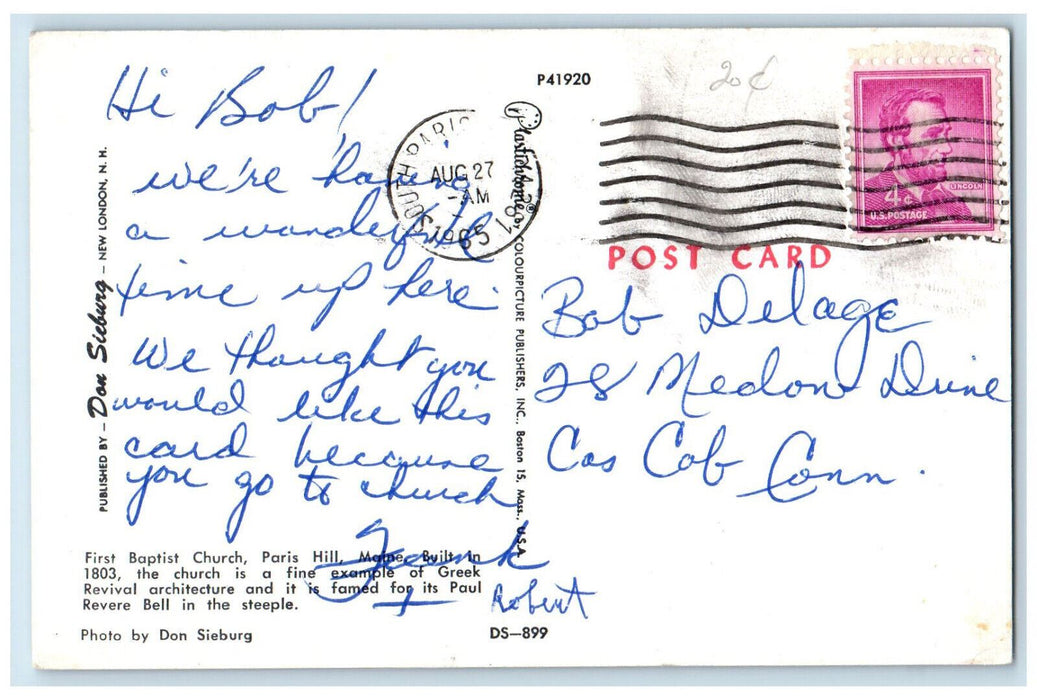 Hi Bob!
we're having
a wonderful
time up here.
We thought you
would like this
card because
you go to church
Frank
+ Robert
First Baptist Church, Paris Hill, Maine. Built in
1803, the church is a fine example of Greek
Revival architecture and it is famed for its Paul
Revere Bell in the steeple.
Photo by Don Sieburg
DS—899
PUBLISHED BY — Don Sieburg — NEW LONDON, N. H.
Plastichrome® by COLOURPICTURE PUBLISHERS, INC., Boston 15, Mass., U.S.A.
P41920
20¢
SOUTH PARIS
AUG 27
-AM
1965
4¢
LINCOLN
U.S. POSTAGE
POST CARD
Bob Delage
28 Medow Drive
Cos Cob Conn.